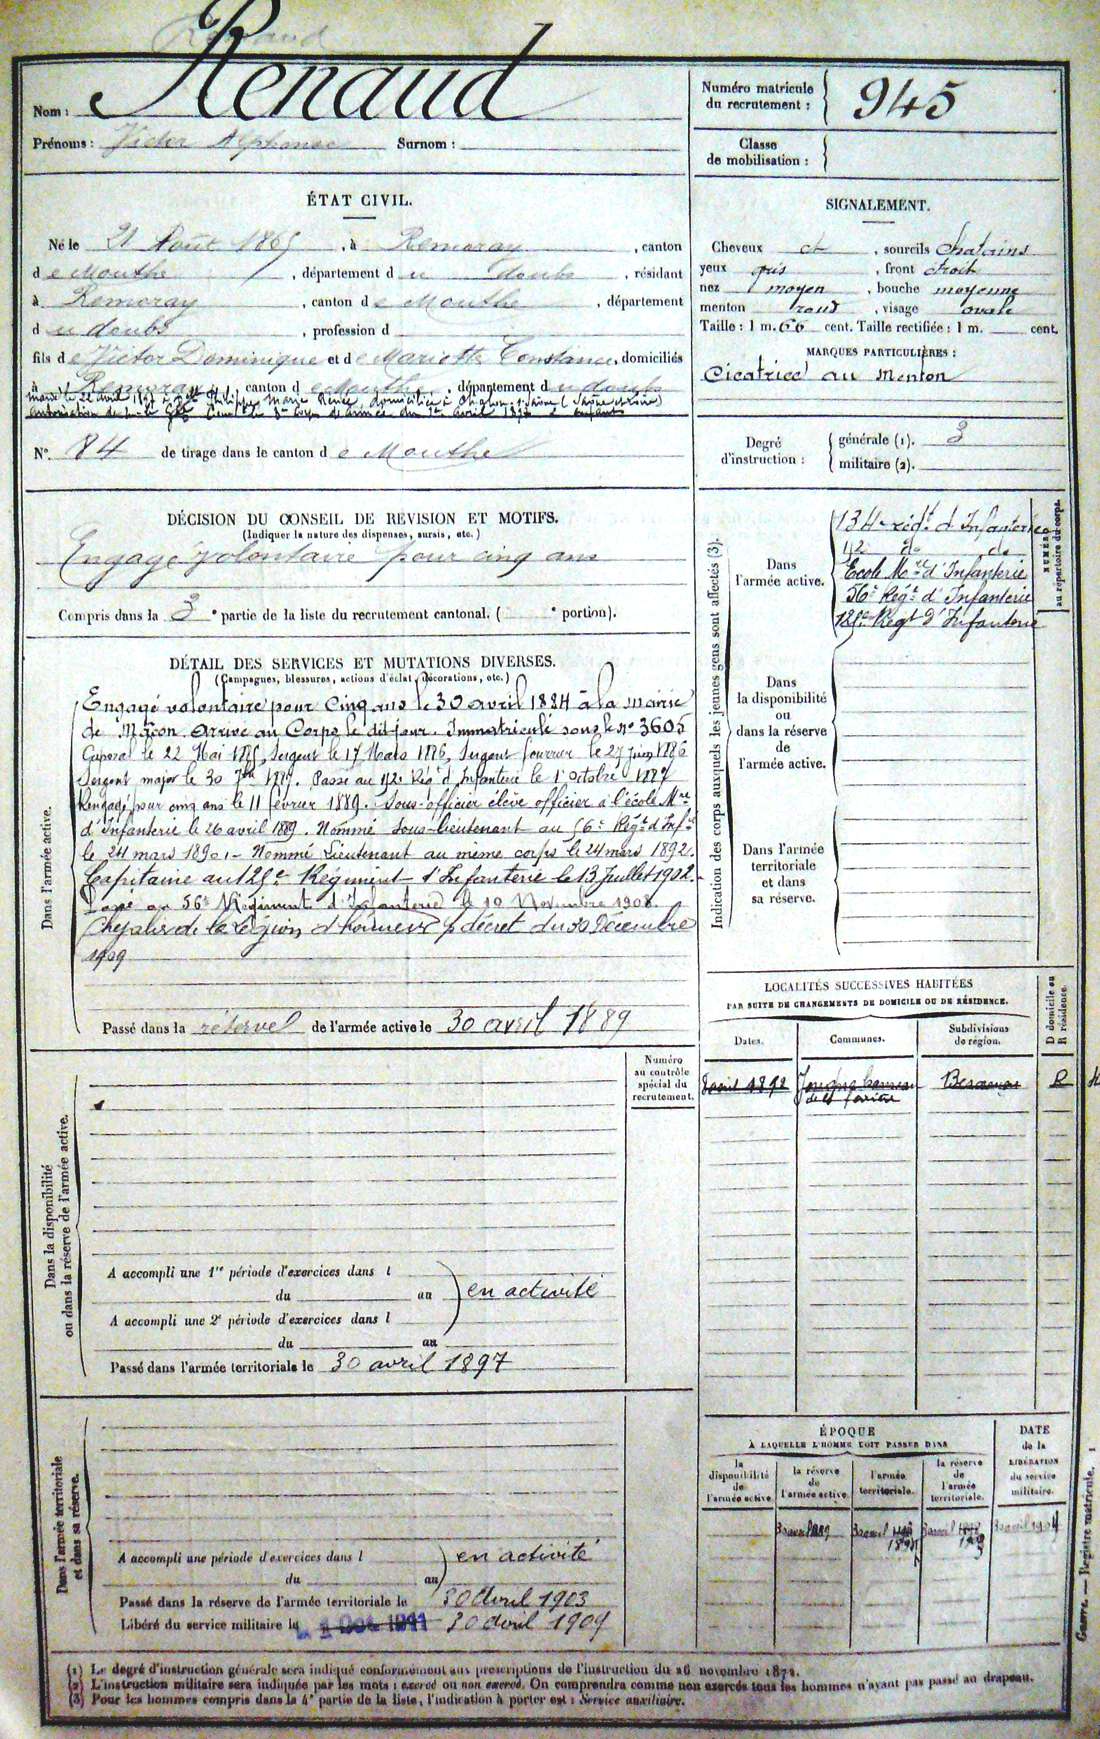 Renaud
Nom : Renaud
Prénoms : Victor Alphonse Surnom :
Numéro matricule du recrutement : 945
Classe de mobilisation :
ÉTAT CIVIL.
Né le 21 Août 1865, à Remoray, canton
de Mouthe, département du doubs, résidant
à Remoray, canton de Mouthe, département
du doubs, profession d
fils de Victor Dominique et de Mariette Constance, domiciliés
à Remoray, canton de Mouthe, département du doubs
marié le 22 avril 1897 à Philippe Marie Renée, domiciliée à Chalon s/ Saône (Saône et Loire)
autorisation de du 1er avril 1897 2 enfants
N° 84 de tirage dans le canton de Mouthe
SIGNALEMENT.
Cheveux et, sourcils chatains
yeux gris, front étroit
nez moyen, bouche moyenne
menton rond, visage ovale
Taille : 1 m. 66 cent. Taille rectifiée : 1 m. cent.
MARQUES PARTICULIÈRES :
Cicatrice au menton
Degré d'instruction : générale (1). 3
militaire (2).
DÉCISION DU CONSEIL DE REVISION ET MOTIFS.
(Indiquer la nature des dispenses, sursis, etc.)
Engagé volontaire pour cinq ans
Compris dans la 3e partie de la liste du recrutement cantonal. ( e portion).
DÉTAIL DES SERVICES ET MUTATIONS DIVERSES.
(Campagnes, blessures, actions d'éclat, décorations, etc.)
Dans l'armée active.
Engagé volontaire pour cinq ans le 30 avril 1884 à la mairie
de Mâcon. Arrivé au Corps le dit jour. Immatriculé sous le n° 3605
Caporal le 22 Mai 1885, Sergent le 17 Mars 1886, Sergent fourrier le 27 juin 1886
Sergent major le 30 7bre 1887. Passé au 42e Régt d'Infanterie le 1er octobre 1887
Rengagé pour cinq ans le 11 février 1889. Sous-officier élève officier à l'école Mre
d'Infanterie le 26 avril 1889. Nommé sous-lieutenant au 56e Régt d'Infie
le 24 mars 1890. - Nommé Lieutenant au même corps le 24 mars 1892.
Capitaine au 128e Régiment d'Infanterie le 13 Juillet 1902.
Passé au 56e Régiment d'Infanterie le 10 Novembre 1908.
Chevalier de la Légion d'honneur p. décret du 30 Décembre
1909
Passé dans la réserve de l'armée active le 30 avril 1889
Indication des corps auxquels les jeunes gens sont affectés (3).
NUMÉRO au répertoire du corps.
Dans l'armée active.
134e régt d'Infanterie
42 do do
Ecole Mre d'Infanterie
56e Régt d'Infanterie
128e Régt d'Infanterie
Dans la disponibilité ou dans la réserve de l'armée active.
Dans l'armée territoriale et dans sa réserve.
LOCALITÉS SUCCESSIVES HABITÉES
PAR SUITE DE CHANGEMENTS DE DOMICILE OU DE RÉSIDENCE.
Dates. Communes. Subdivisions de région. D domicile ou R résidence.
avril 1892 Besançon R
Dans la disponibilité ou dans la réserve de l'armée active.
Numéro au contrôle spécial du recrutement.
A accompli une 1re période d'exercices dans l
du au
en activité
A accompli une 2e période d'exercices dans l
du au
Passé dans l'armée territoriale le 30 avril 1897
Dans l'armée territoriale et dans sa réserve.
A accompli une période d'exercices dans l
du au
en activité
Passé dans la réserve de l'armée territoriale le 30 Avril 1903
Libéré du service militaire le 1 Oct 1911 30 avril 1909
ÉPOQUE
À LAQUELLE L'HOMME DOIT PASSER DANS
la disponibilité de l'armée active. la réserve de l'armée active. l'armée territoriale. la réserve de l'armée territoriale.
DATE de la LIBÉRATION du service militaire.
30 avril 1889
Guerre. — Registre matricule. 1
(1) Le degré d'instruction générale sera indiqué conformément aux prescriptions de l'instruction du 26 novembre 1872.
(2) L'instruction militaire sera indiquée par les mots : exercé ou non exercé. On comprendra comme non exercés tous les hommes n'ayant pas passé au drapeau.
(3) Pour les hommes compris dans la 4e partie de la liste, l'indication à porter est : Service auxiliaire.